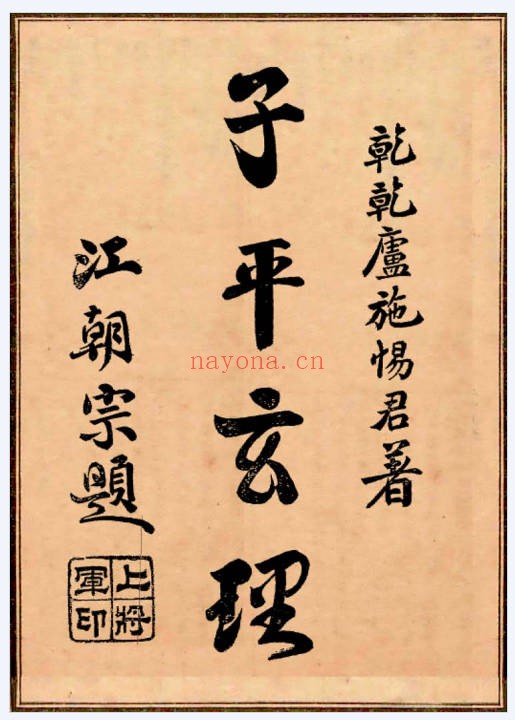 乾乾廬施惕君著
子平玄理
江朝宗題
上將軍印
nayona.cn